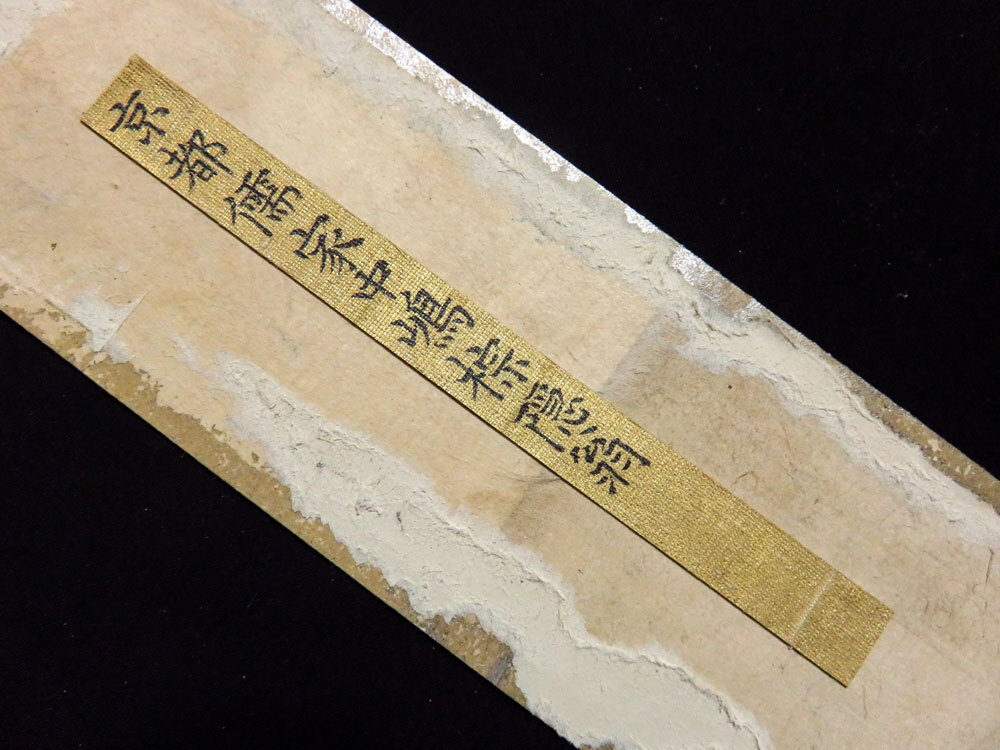 京都儒家中嶋棕隠翁